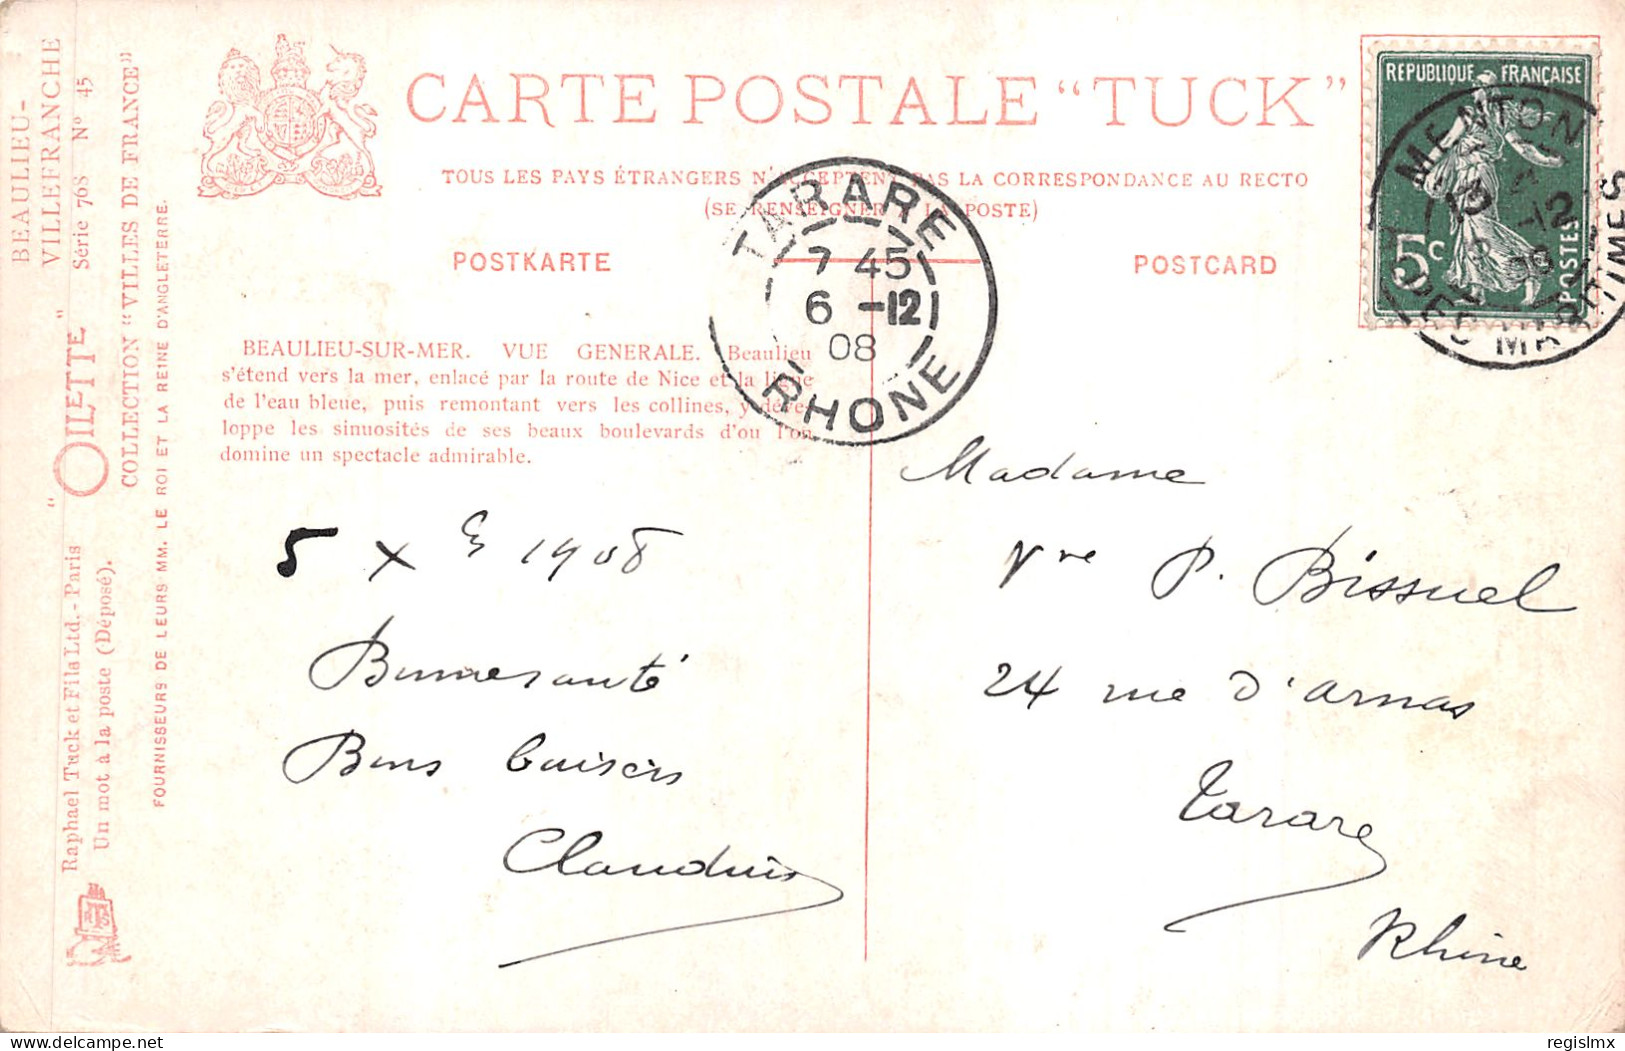 BEAULIEU-
VILLEFRANCHE
Série 70S Nº 45
"OILETTE"
COLLECTION "VILLES DE FRANCE"
Raphael Tuck et Fils Ltd. - Paris
Un mot à la poste (Déposé).
FOURNISSEURS DE LEURS MM. LE ROI ET LA REINE D'ANGLETERRE.
CARTE POSTALE "TUCK"
TOUS LES PAYS ÉTRANGERS N'ACCEPTENT PAS LA CORRESPONDANCE AU RECTO
(SE RENSEIGNER À LA POSTE)
POSTKARTE
POSTCARD
REPUBLIQUE FRANÇAISE
5c
POSTES
MENTON
-12
TARARE
7 45
6 -12
08
RHONE
BEAULIEU-SUR-MER. VUE GENERALE. Beaulieu
s'étend vers la mer, enlacé par la route de Nice et la ligne
de l'eau bleue, puis remontant vers les collines, y déve-
loppe les sinuosités de ses beaux boulevards d'ou l'on
domine un spectacle admirable.
5 Xe 1908
Bonne santé
Bons baisers
Claudius
Madame
Vve P. Bissuel
24 rue d'arnas
Tarare
Rhône
delcampe.net
regislmx